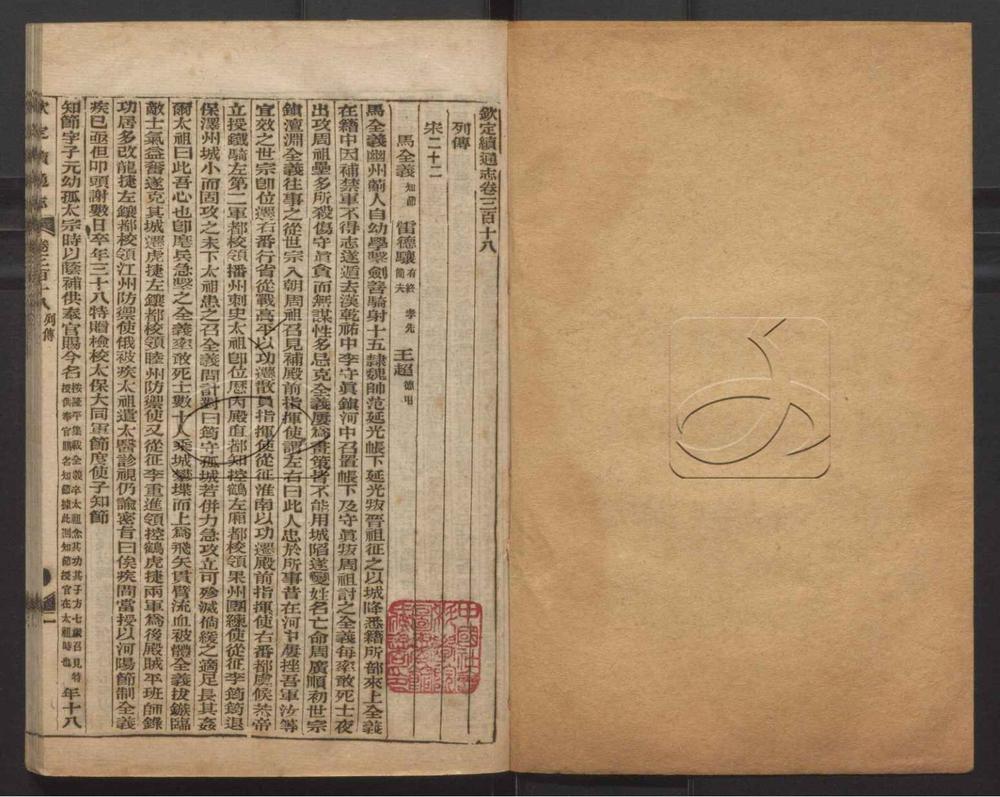 欽定續通志卷三百十八
列傳
宋二十二
馬全義知節 雷德驤有終 孝先 簡夫 王超德用
馬全義幽州薊人自幼學擊劍善騎射十五隸魏帥范延光帳下延光叛晉祖征之以城降悉籍所部來上全義
在籍中因補禁軍不得志遂遁去漢乾祐中李守貞鎮河中召置帳下及守貞叛周祖討之全義每率敢死士夜
出攻周祖壘多所殺傷守貞貪而無謀性多忌克全義屢為畫策皆不能用城陷遂變姓名亡命周廣順初世宗
鎮澶淵全義往事之從世宗入朝周祖召見補殿前指揮使謂左右曰此人忠於所事昔在河中屢挫吾軍汝等
宜效之世宗卽位遷右番行省從戰高平以功遷散員指揮使從征淮南以功遷殿前指揮使右番都虞候恭帝
立授鐵騎左第二軍都校領播州刺史太祖卽位歷內殿直都知控鶴左廂都校領果州團練使從征李筠筠退
保澤州城小而固攻之未下太祖患之召全義問計對曰筠守孤城若併力急攻立可殄滅倘緩之適足長其姦
爾太祖曰此吾心也卽麾兵急擊之全義率敢死士數十人乘城攀堞而上為飛矢貫臂流血被體全義拔鏃臨
敵士氣益奮遂克其城遷虎捷左鑲都校領睦州防禦使又從征李重進領控鶴虎捷兩軍為後殿賊平班師錄
功居多改龍捷左鑲都校領江州防禦使俄被疾太祖遣太醫診視仍諭密旨曰俟疾間當授以河陽節制全義
疾已亟但叩頭謝數日卒年三十八特贈檢校太保大同軍節度使子知節
知節字子元幼孤太宗時以蔭補供奉官賜今名按隆平集載全義卒太祖念其功其子方七歲召見特授供奉官賜名知節據此則知節授官在太祖時也年十八
欽定續通志 卷三百十八 列傳 一